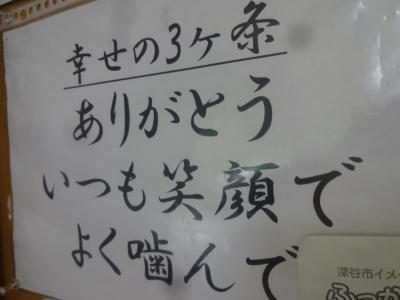 幸せの3ヶ条
ありがとう
いつも笑顔で
よく噛んで
深谷市イメ
ふっか